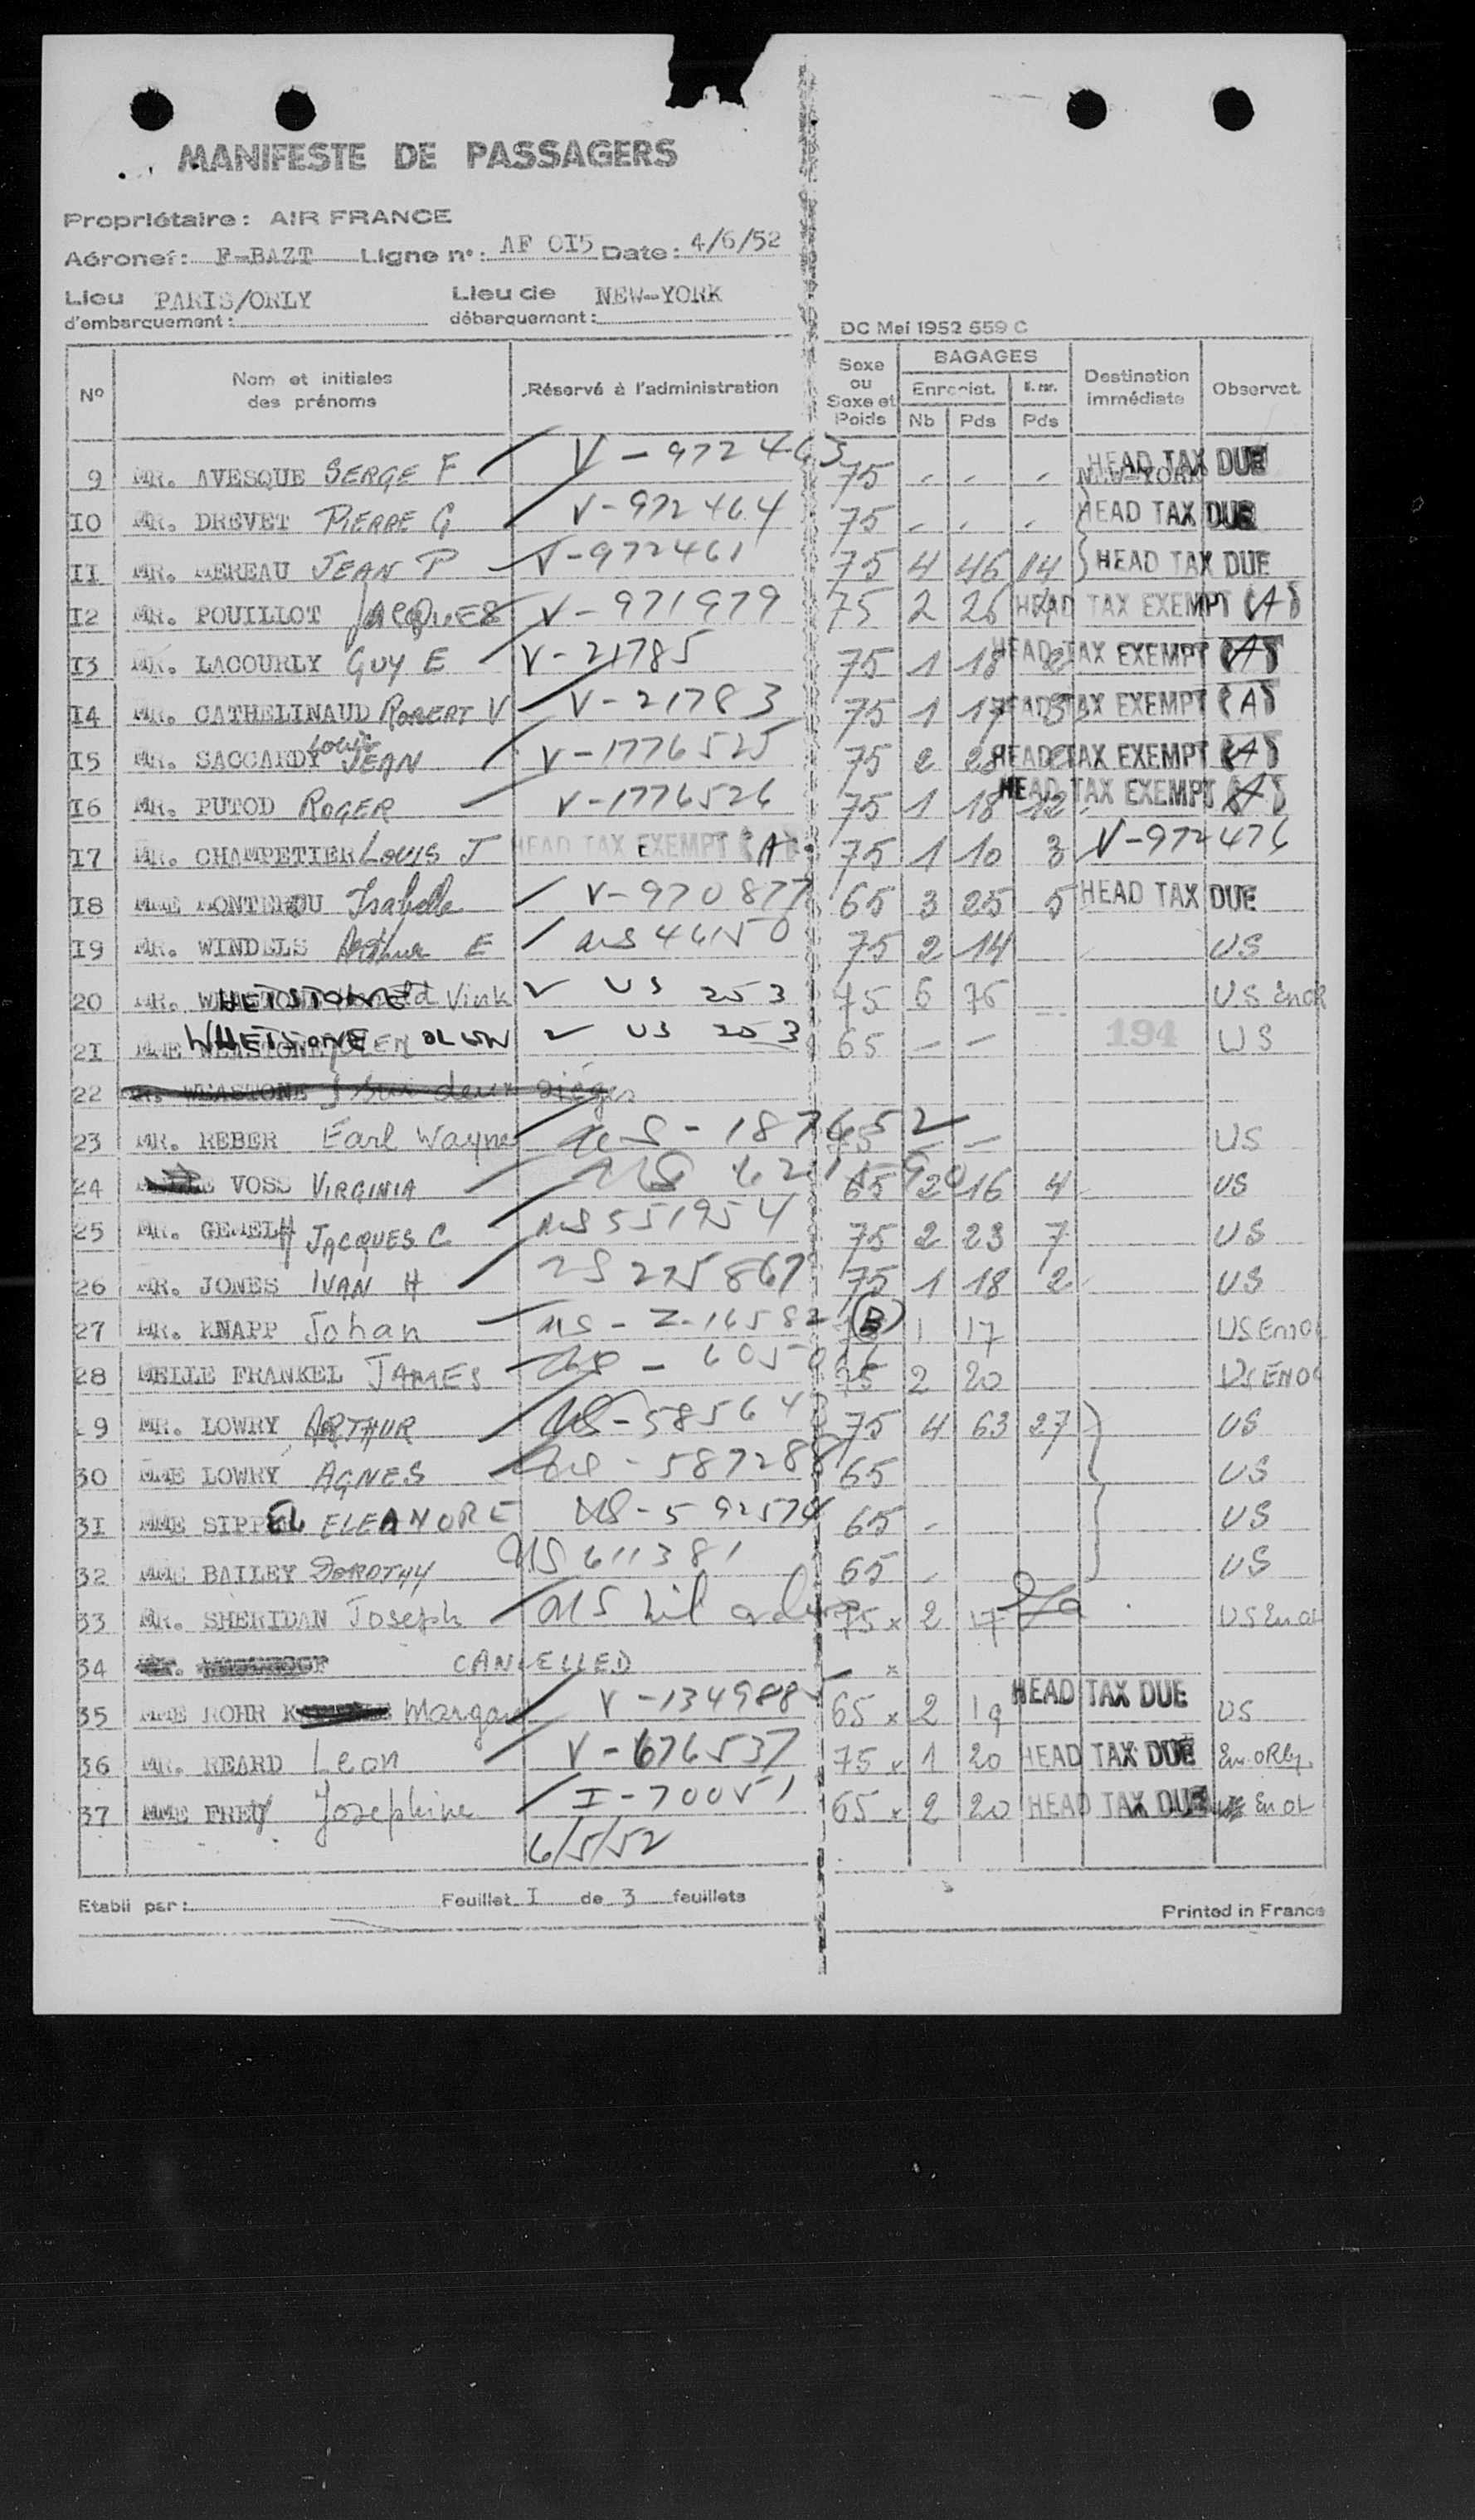 MANIFESTE DE PASSAGERS
Propriétaire: AIR FRANCE
Aéronef: F-BAZT Ligne n°: AF OI5 Date: 4/6/52
Lieu d'embarquement: PARIS/ORLY Lieu de débarquement: NEW-YORK
DC Mai 1952 559 C
N° Nom et initiales des prénoms Réservé à l'administration Sexe ou Sexe et Poids BAGAGES Enregist. Nb Pds Pds Destination immédiate Observat.
9 MR. AVESQUE SERGE F V-972463 75 - - - NEW-YORK HEAD TAX DUE
IO MR. DREVET PIERRE G V-972464 75 - - - HEAD TAX DUE
II MR. MEREAU JEAN P V-972461 75 4 46 14 HEAD TAX DUE
I2 MR. POUILLOT JACQUES V-971979 75 2 26 HEAD TAX EXEMPT (A)
I3 MR. LACOURLY GUY E V-21785 75 1 18 HEAD TAX EXEMPT (A)
I4 MR. CATHELINAUD ROBERT V V-21783 75 1 17 HEAD TAX EXEMPT (A)
I5 MR. SACCARDY Louis JEAN V-1776525 75 2 28 HEAD TAX EXEMPT (A)
I6 MR. PUTOD ROGER V-1776526 75 1 18 12 HEAD TAX EXEMPT (A)
I7 MR. CHAMPETIER LOUIS J HEAD TAX EXEMPT (A) 75 1 10 3 V-972476
I8 MME Isabelle V-970877 65 3 25 5 HEAD TAX DUE
I9 MR. WINDELS Arthur E US 46150 75 2 14 US
20 MR. WHETSTONE Vink US 253 75 6 76 US
2I MME WHETSTONE US 253 65 - - 194 US
22 WEASTONE sur deux sièges
23 MR. REBER Earl Wayne US-187652 75 - - US
24 VOSS VIRGINIA US 65 2 16 4 US
25 MR. JACQUES C US 551954 75 2 23 7 US
26 MR. JONES IVAN H US 225867 75 1 18 2 US
27 MR. KNAPP Johan US-Z-16582 (B) 1 17 US
28 MELLE FRANKEL JAMES US 75 2 20 US
9 MR. LOWRY ARTHUR US-585643 75 4 63 27 US
30 MME LOWRY AGNES US-587288 65 US
3I MME SIPPEL ELEANORE US-592574 65 - US
32 MME BAILEY DOROTHY US 611381 65 - US
33 MR. SHERIDAN Joseph US 75 x 2 17 US
34 CANCELLED x
35 MME ROHR Margar V-134988 65 x 2 19 HEAD TAX DUE US
36 MR. REARD Leon V-676537 75 x 1 20 HEAD TAX DUE
37 MME FREY Josephine I-70051 65 x 2 20 HEAD TAX DUE
6/5/52
Etabli par: Feuillet I de 3 feuillets
Printed in France